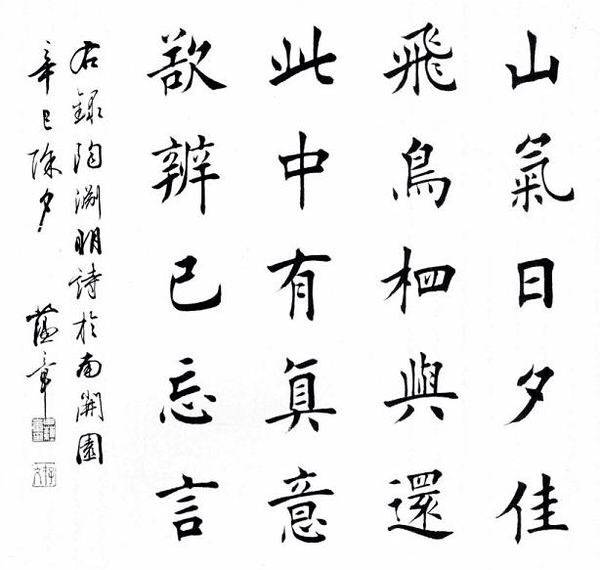 山氣日夕佳
飛鳥相與還
此中有真意
欲辨已忘言
右錄陶淵明詩於南開園
辛巳除夕 章